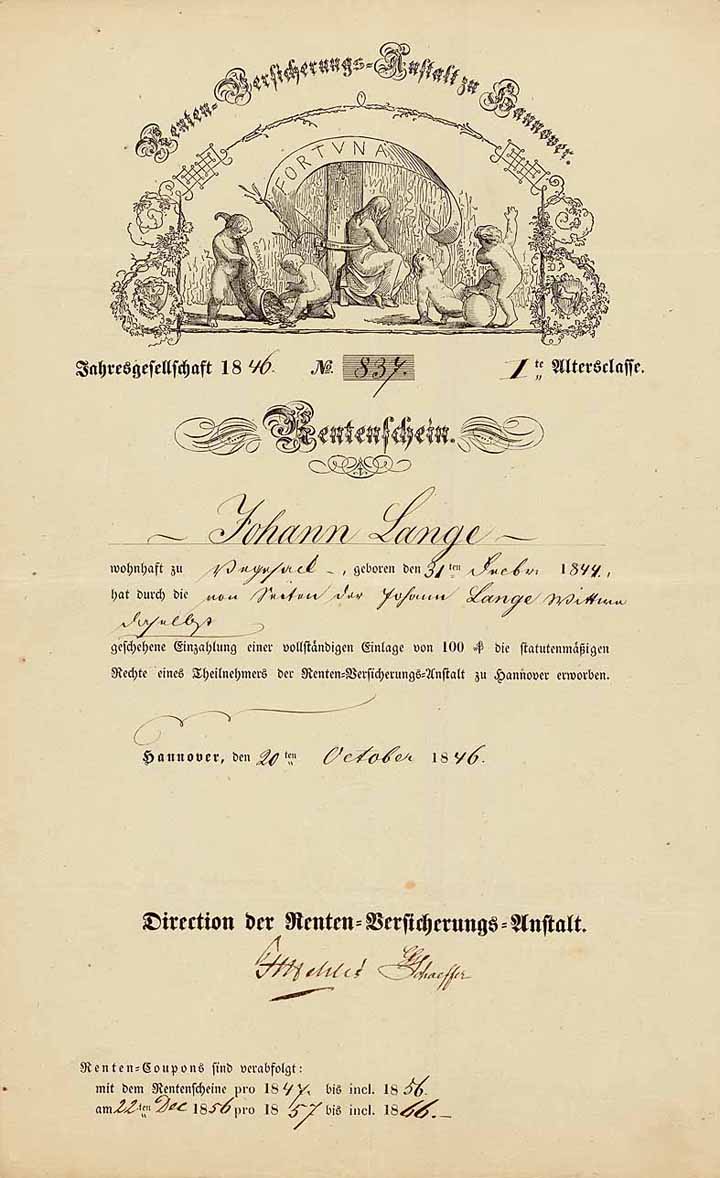 Renten-Versicherungs-Anstalt zu Hannover.
FORTVNA
Jahresgesellschaft 1846. No. 837. I te Altersclasse.
Rentenschein.
Johann Lange
wohnhaft zu Vegesack, geboren den 31ten Decbr. 1844,
hat durch die von Seiten der Johann Lange Wittwe
daselbst
geschehene Einzahlung einer vollständigen Einlage von 100 ₰ die statutenmäßigen
Rechte eines Theilnehmers der Renten-Versicherungs-Anstalt zu Hannover erworben.
Hannover, den 20ten October 1846.
Direction der Renten-Versicherungs-Anstalt.
Schaeffer
Renten-Coupons sind verabfolgt:
mit dem Rentenscheine pro 1847. bis incl. 1856.
am 22ten Dec 1856 pro 1857 bis incl. 1866.